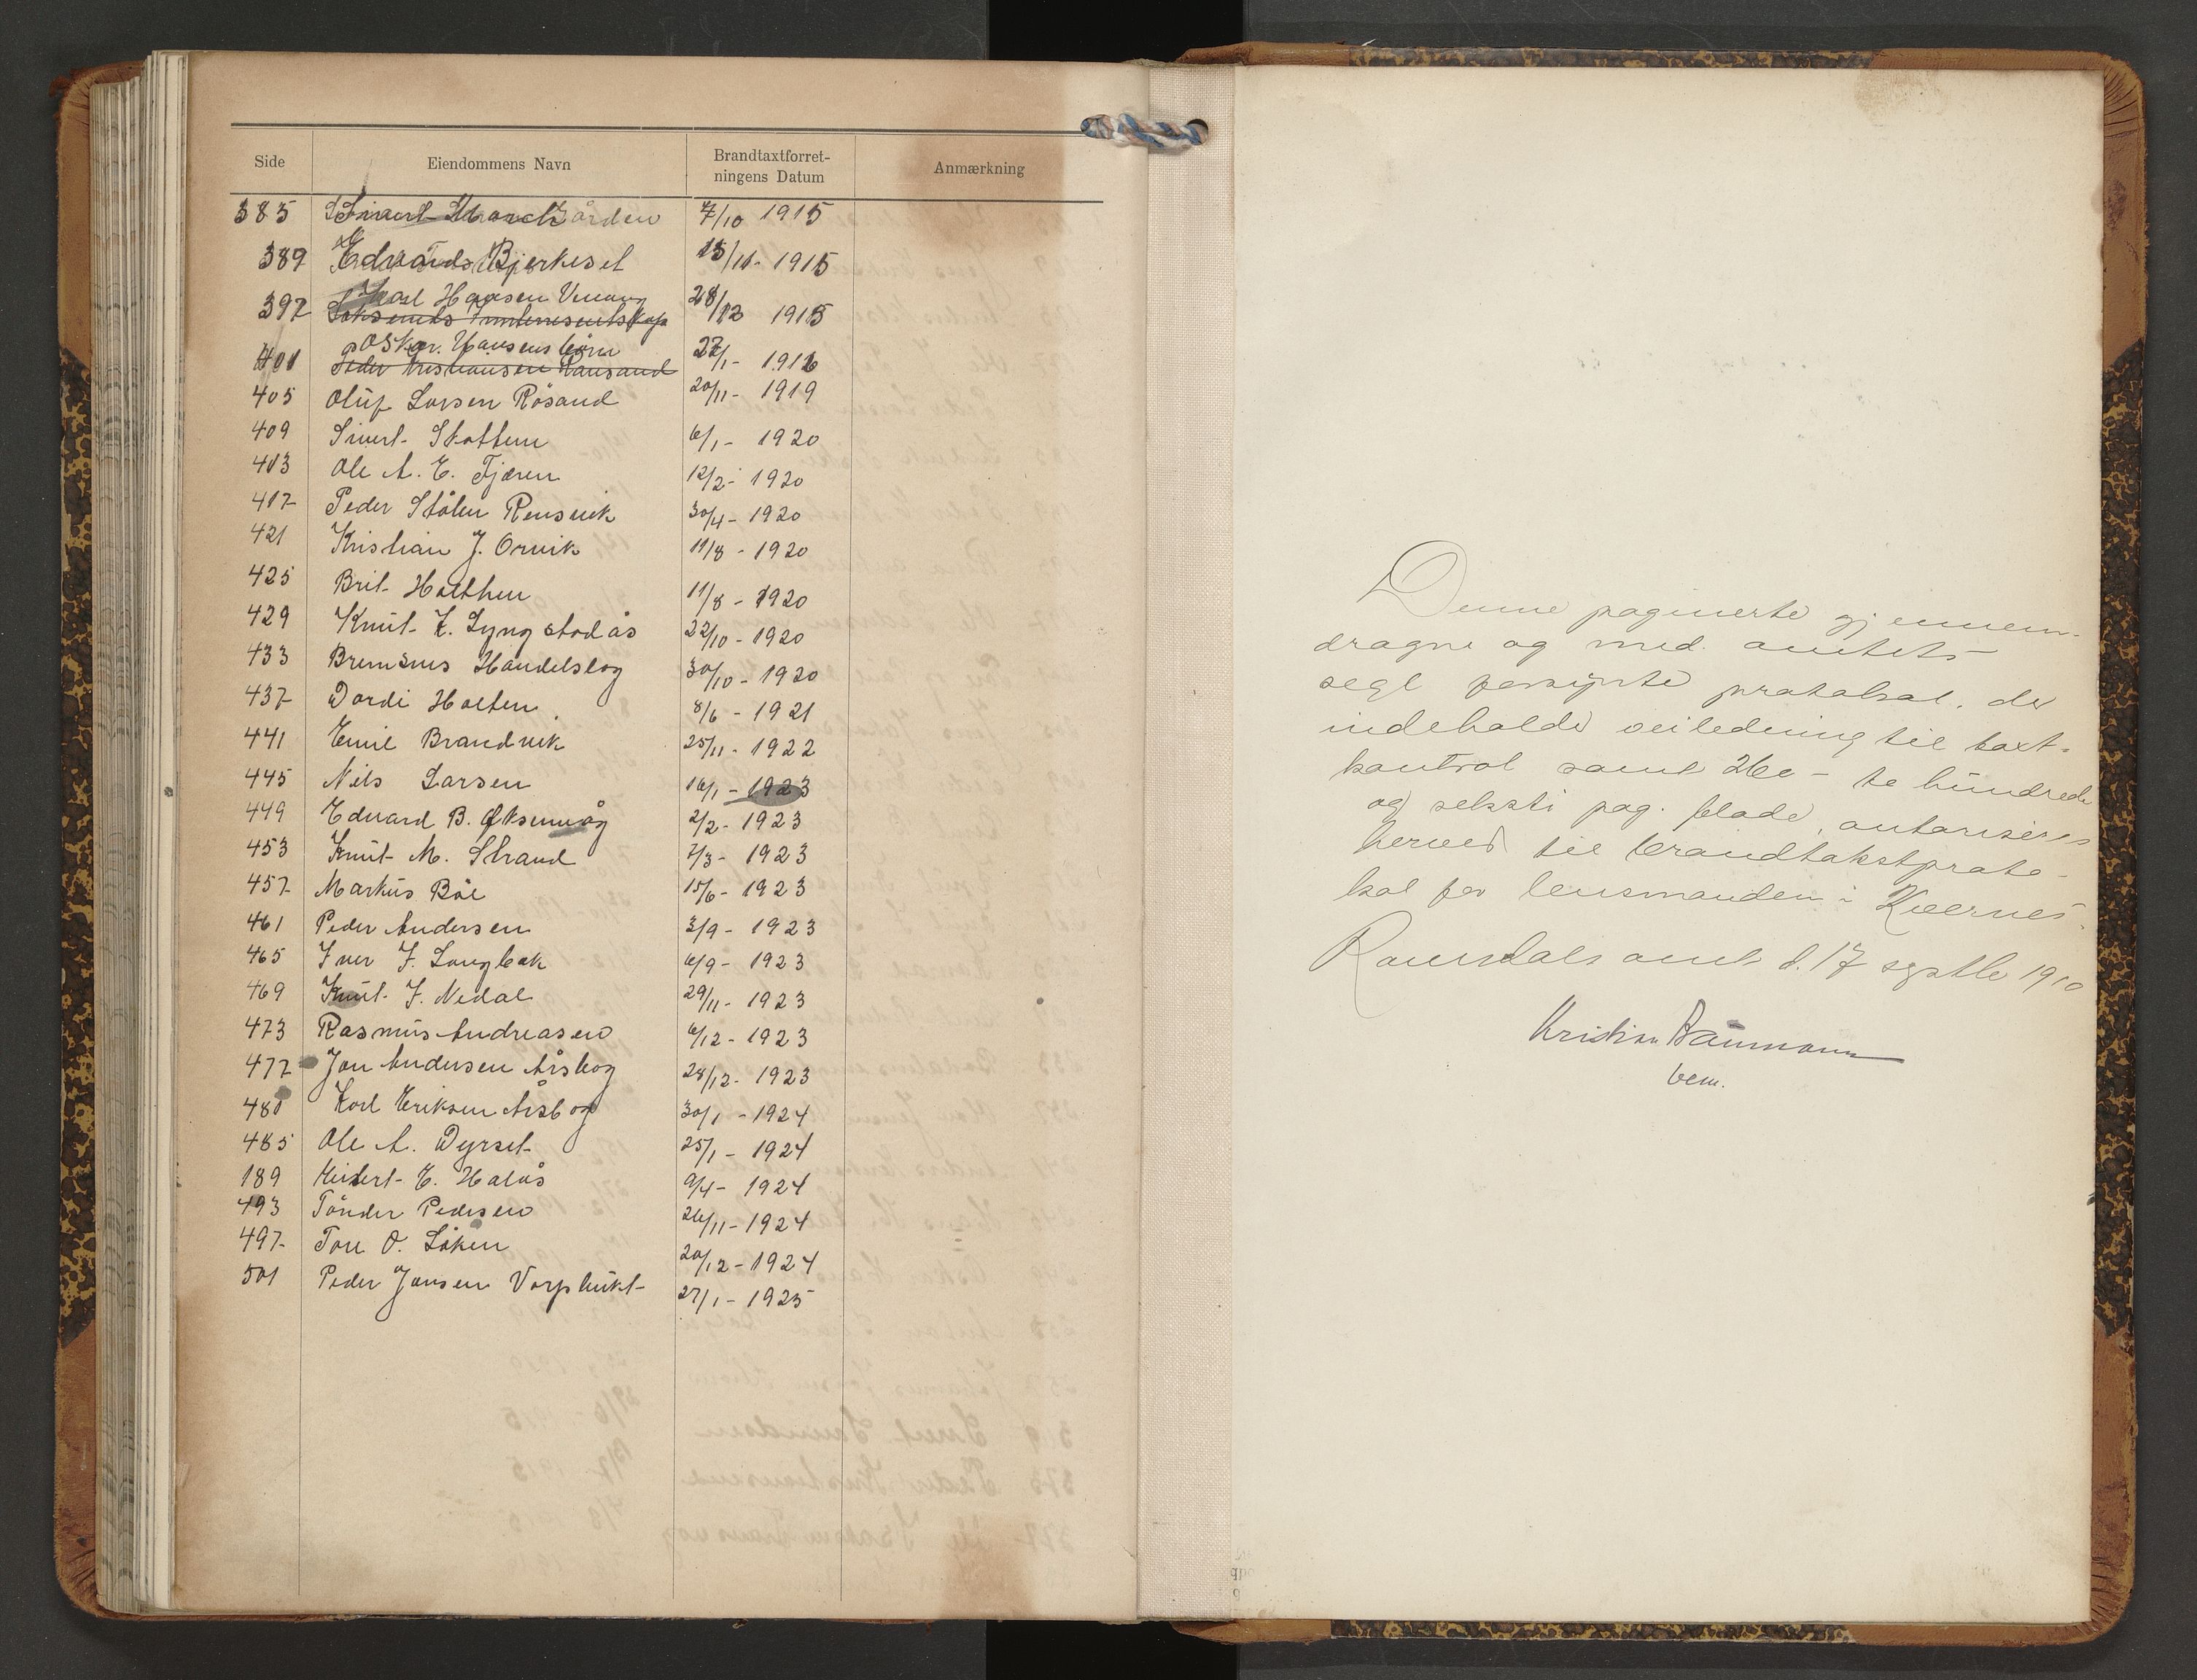 Side Eiendommens Navn Brandtaxtforret-ningens Datum Anmærkning
385 7/10 1915
389 Edvard Bjerkeset 13/11- 1915
Karl Hansen
397 28/12 1915
Oskar Hansens
401 Peder Kristiansen Ransand 27/1- 1916
405 Oluf Larsen Røsand 20/11- 1919
409 Sivert Skottem 6/1- 1920
413 Ole A. E. Tjæren 12/2- 1920
417 Peder Stølen Rensvik 30/4- 1920
421 Kristian J. Orvik 11/8 - 1920
425 Brit Holthen 11/8 - 1920
429 Knut K. Lyngstadås 22/10 - 1920
433 Bremsnes Handelslag 30/10 - 1920
437 Dordi Holten 8/6 - 1921
441 Emil Brandvik 25/11 - 1922
445 Nils Larsen 16/1 - 1923
449 Edvard B. Øksenvåg 2/2 - 1923
453 Knut M. Strand 7/3 - 1923
457 Markus Bøe 15/6 - 1923
461 Peder Andersen 3/9 - 1923
465 Iver J. Langbak 6/9 - 1923
469 Knut J. Nedal 29/11 - 1923
473 Rasmus Andreasen 6/12 - 1923
477 Jon Andersen Årsbog 28/12 - 1923
481 Karl Eriksen Årsbog 30/1 - 1924
485 Ole A. Dyrset 25/1 - 1924
189 E. Halås 9/4 - 1924
493 Tønder Pedersen 26/11 - 1924
497 Tore O. Løken 20/12 - 1924
501 Peder Jansen Vorpbukt 27/1 - 1925
Denne paginerte gjennem-
dragne og med amtets
segl forsynte protokol, der
indeholder veiledning til taxt-
kontrol samt 260 - to hundrede
og seksti pag. blade, autoriseres
herved til brandtakstproto-
kol for lensmanden i Kvernes.
Romsdals amt d. 17 septbr 1910
Kristian Baumann
bem.